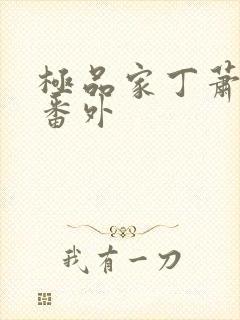 極品家丁蕭
番外
我有一刀